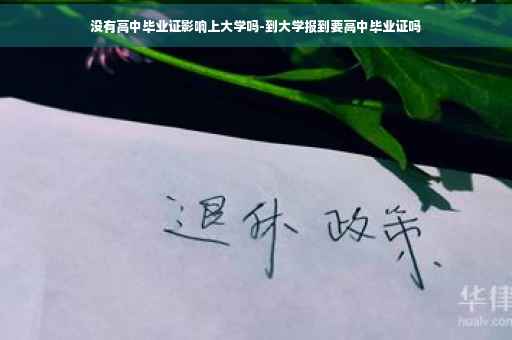 没有高中毕业证影响上大学吗-到大学报到要高中毕业证吗
退休 政策
华律
hualv.com